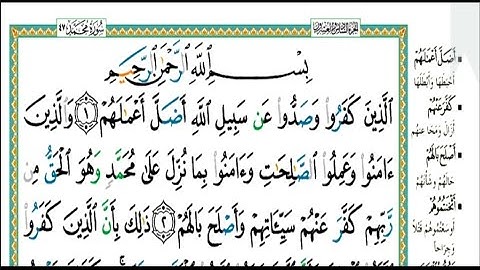 سورة محمد ٤٧
الجزء السادس والعشرون
بِسْمِ اللَّهِ الرَّحْمَٰنِ الرَّحِيمِ
ٱلَّذِينَ كَفَرُوا۟ وَصَدُّوا۟ عَن سَبِيلِ ٱللَّهِ أَضَلَّ أَعْمَٰلَهُمْ ١ وَٱلَّذِينَ
ءَامَنُوا۟ وَعَمِلُوا۟ ٱلصَّٰلِحَٰتِ وَءَامَنُوا۟ بِمَا نُزِّلَ عَلَىٰ مُحَمَّدٍ وَهُوَ ٱلْحَقُّ مِن
رَّبِّهِمْ كَفَّرَ عَنْهُمْ سَيِّـَٔاتِهِمْ وَأَصْلَحَ بَالَهُمْ ٢ ذَٰلِكَ بِأَنَّ ٱلَّذِينَ كَفَرُوا۟
أَضَلَّ أَعْمَٰلَهُمْ
أحبطها وأبطلها
كَفَّرَ عَنْهُمْ
أزال ومحا عنهم
أَصْلَحَ بَالَهُمْ
حالهم وشأنهم
أَثْخَنتُمُوهُمْ
أوسعتموهم قتلاً
وجراحاً